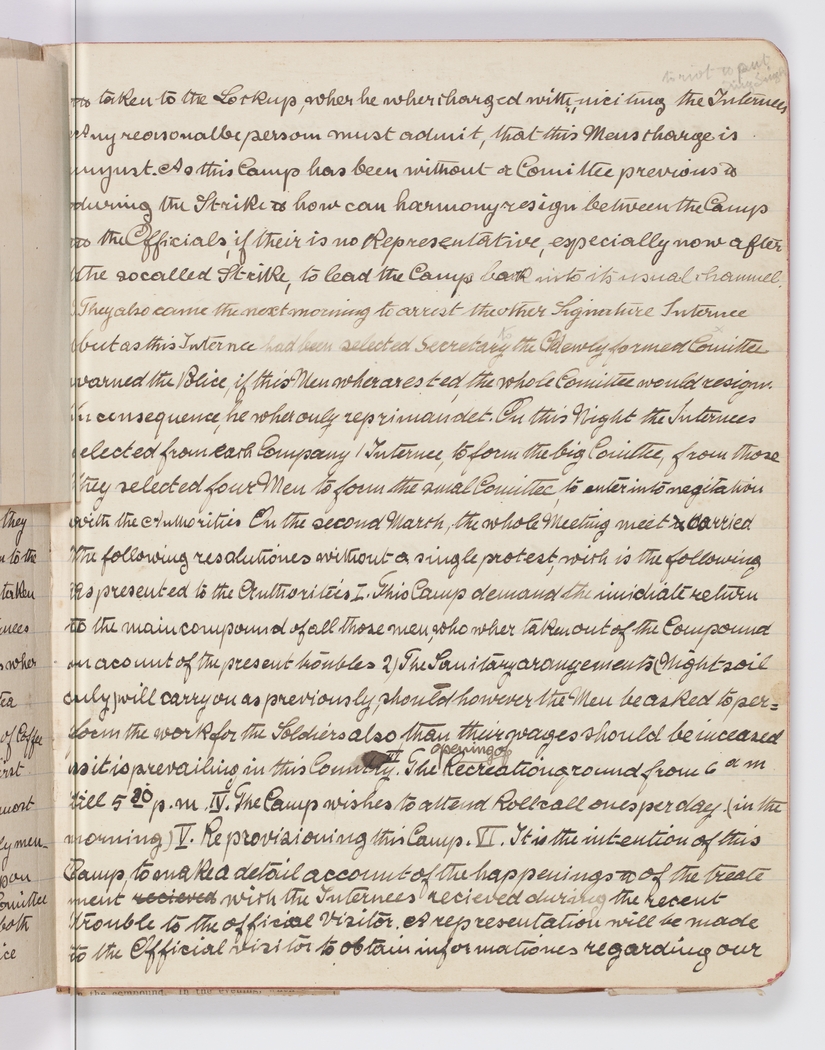 to riot
to taken to the Lockup, wher he wher charged with, niciting the Internees
Any reasonalbe persom must admit, that this Mens charge is
unjust. As this Camp has been without a Comittee previous &
during the Strike & how can harmony resign between the Camp
to the Officials, if their is no Representative, especially now after
the socalled Strike, to lead the Camp back into its usual channel.
They also came the next morning to arrest the other Signature Internee
but as this Internee had been selected Secretary the Newly formed Comittee
warned the Police, if this Men wher arested, the whole Comittee would resign.
In consequence, he wher only reprimandet. On this Night the Internees
selected from each Company 1 Internee, to form the big Comittee, from those
they selected four Men to form the smal Comittee, to enter into negitation
with the Authorities On the second March, the whole Meeting meet & carried
the following resolutiones without a single protest, wich is the following
as presented to the Authorities I. This Camp demand the imidiate return
to the main compound of all those men, who wher taken out of the Compound
on acount of the present troubles 2) The Sanitary arangements (Night soil
only) will carry on as previously, should however the Men be asked to per=
form the work for the Soldiers also than their wages should be inceased
opening of
as it is prevailing in this Country. III The Recreationground from 6 a m
till 5 30 p.m. IV. The Camp wishes to attend Rollcall ones per day. (in the
morning) V. Reprovisioning this Camp. VI. It is the intention of this
Camp, to make a detail account of the happenings & of the treate
ment recieved wich the Internees recieved during the recent
trouble to the official Visitor. A representation will be made
to the Official visitor to obtain informationes regarding our
they
to the
taken
wher
of Coffee
most
ly men_
Comittee
both
the compound. In the evening